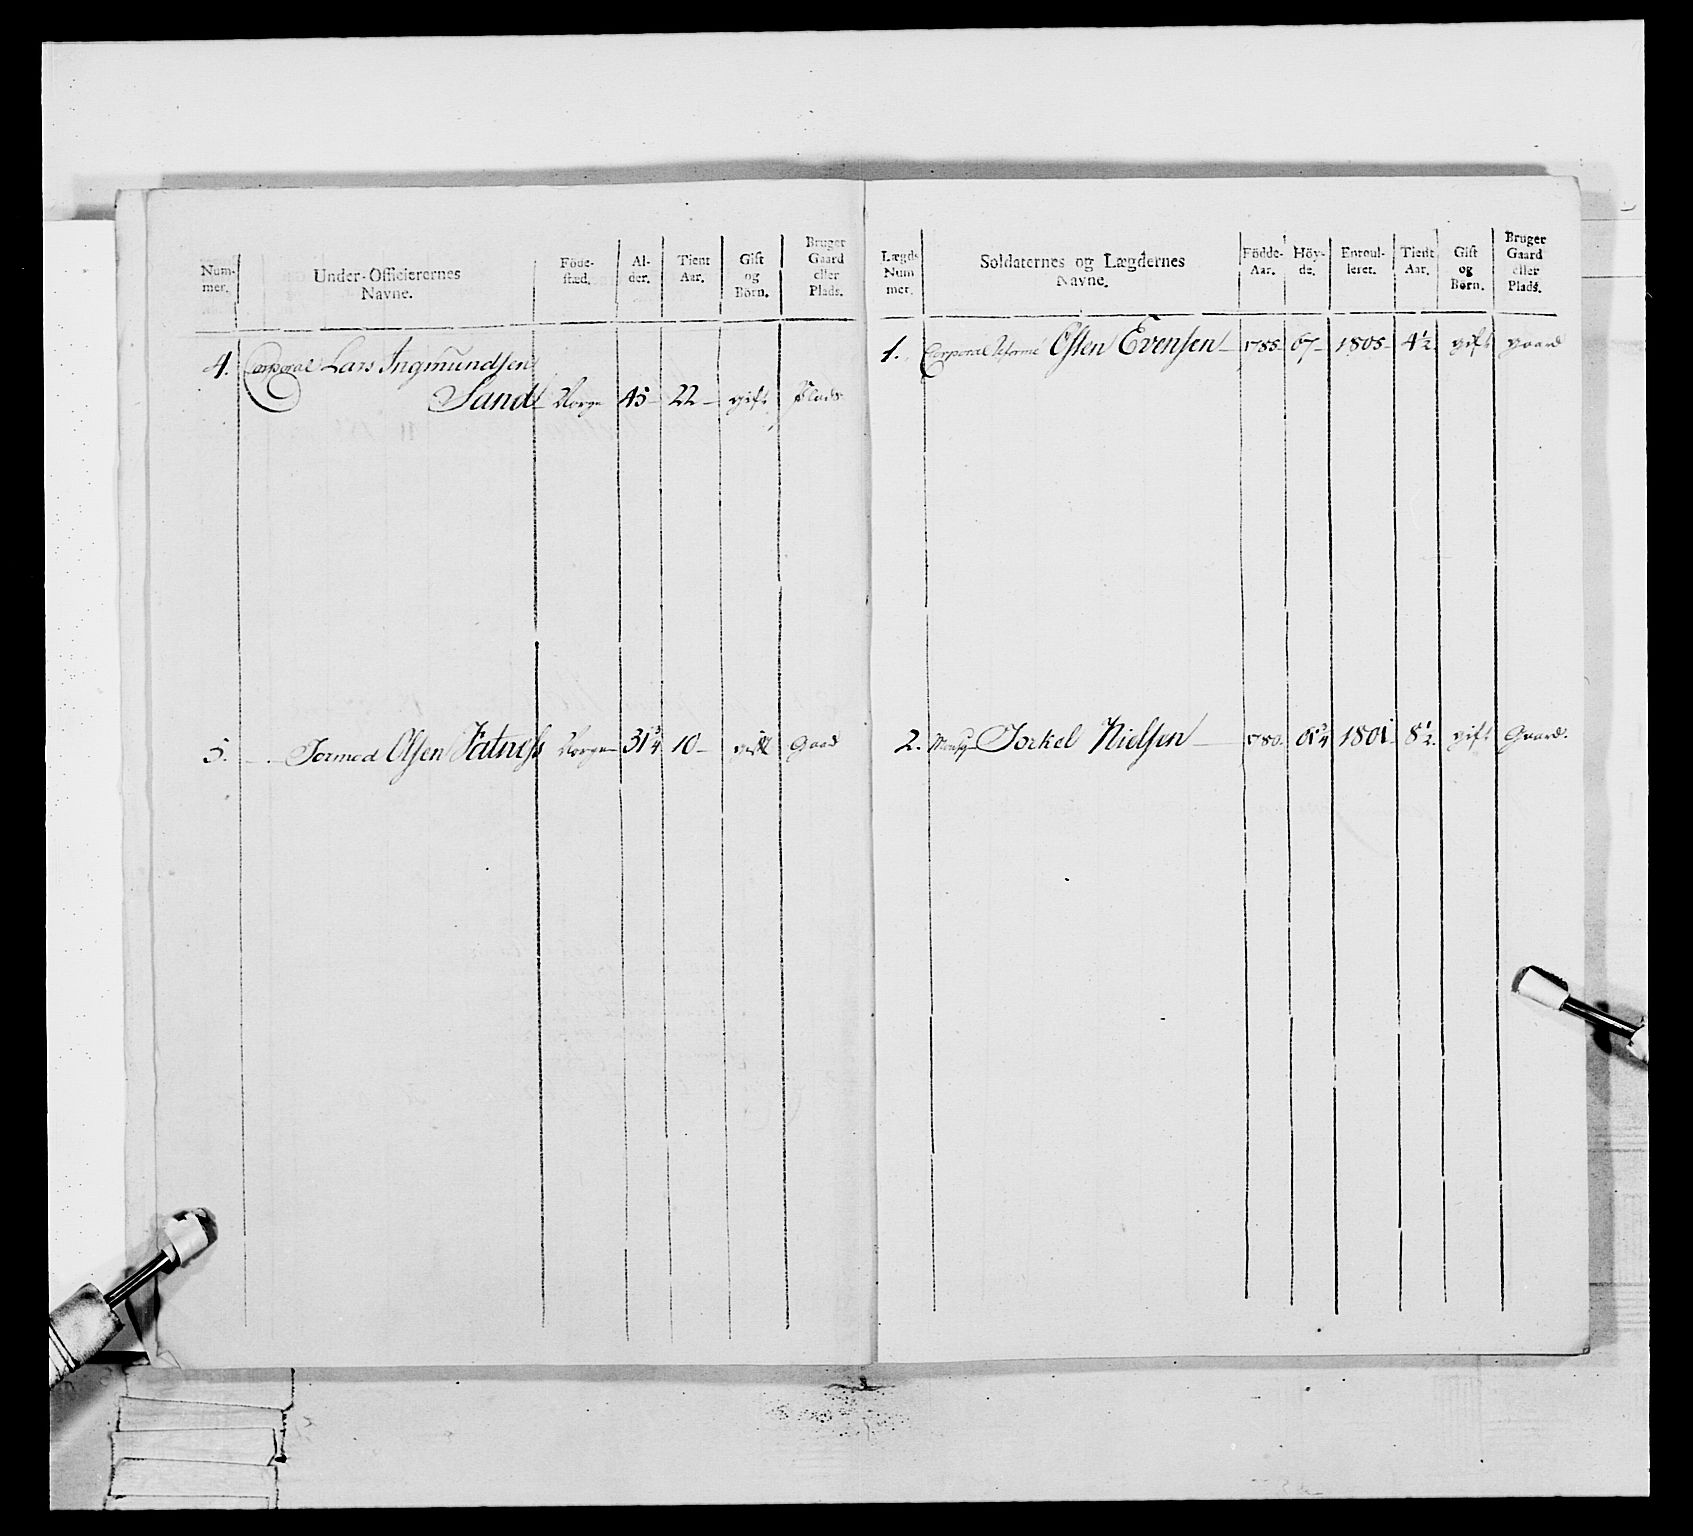 Num-
mer.
Under-Officierernes
Navne.
Föde-
stæd.
Al-
der.
Tient
Aar.
Gift
og
Börn.
Bruger
Gaard
eller
Plads.
4. Corporal Lars Ingmundsen
Sand Norge 45 22 gift Plads
5. Tormod Olsen Fatness Norge 31 3/4 10 gift Gaard
Lægds
Num
mer.
Soldaternes og Lægdernes
Navne.
Födde-
Aar.
Höy-
de.
Enroul-
leret.
Tient
Aar.
Gift
og
Børn.
Bruger
Gaard
eller
Plads.
1. Corporal Reformé Østen Evensen 1785 67 1805 4 1/2 gift gaard
2. Torkel Nielsen 1780 1801 8 1/2 gift Gaard.